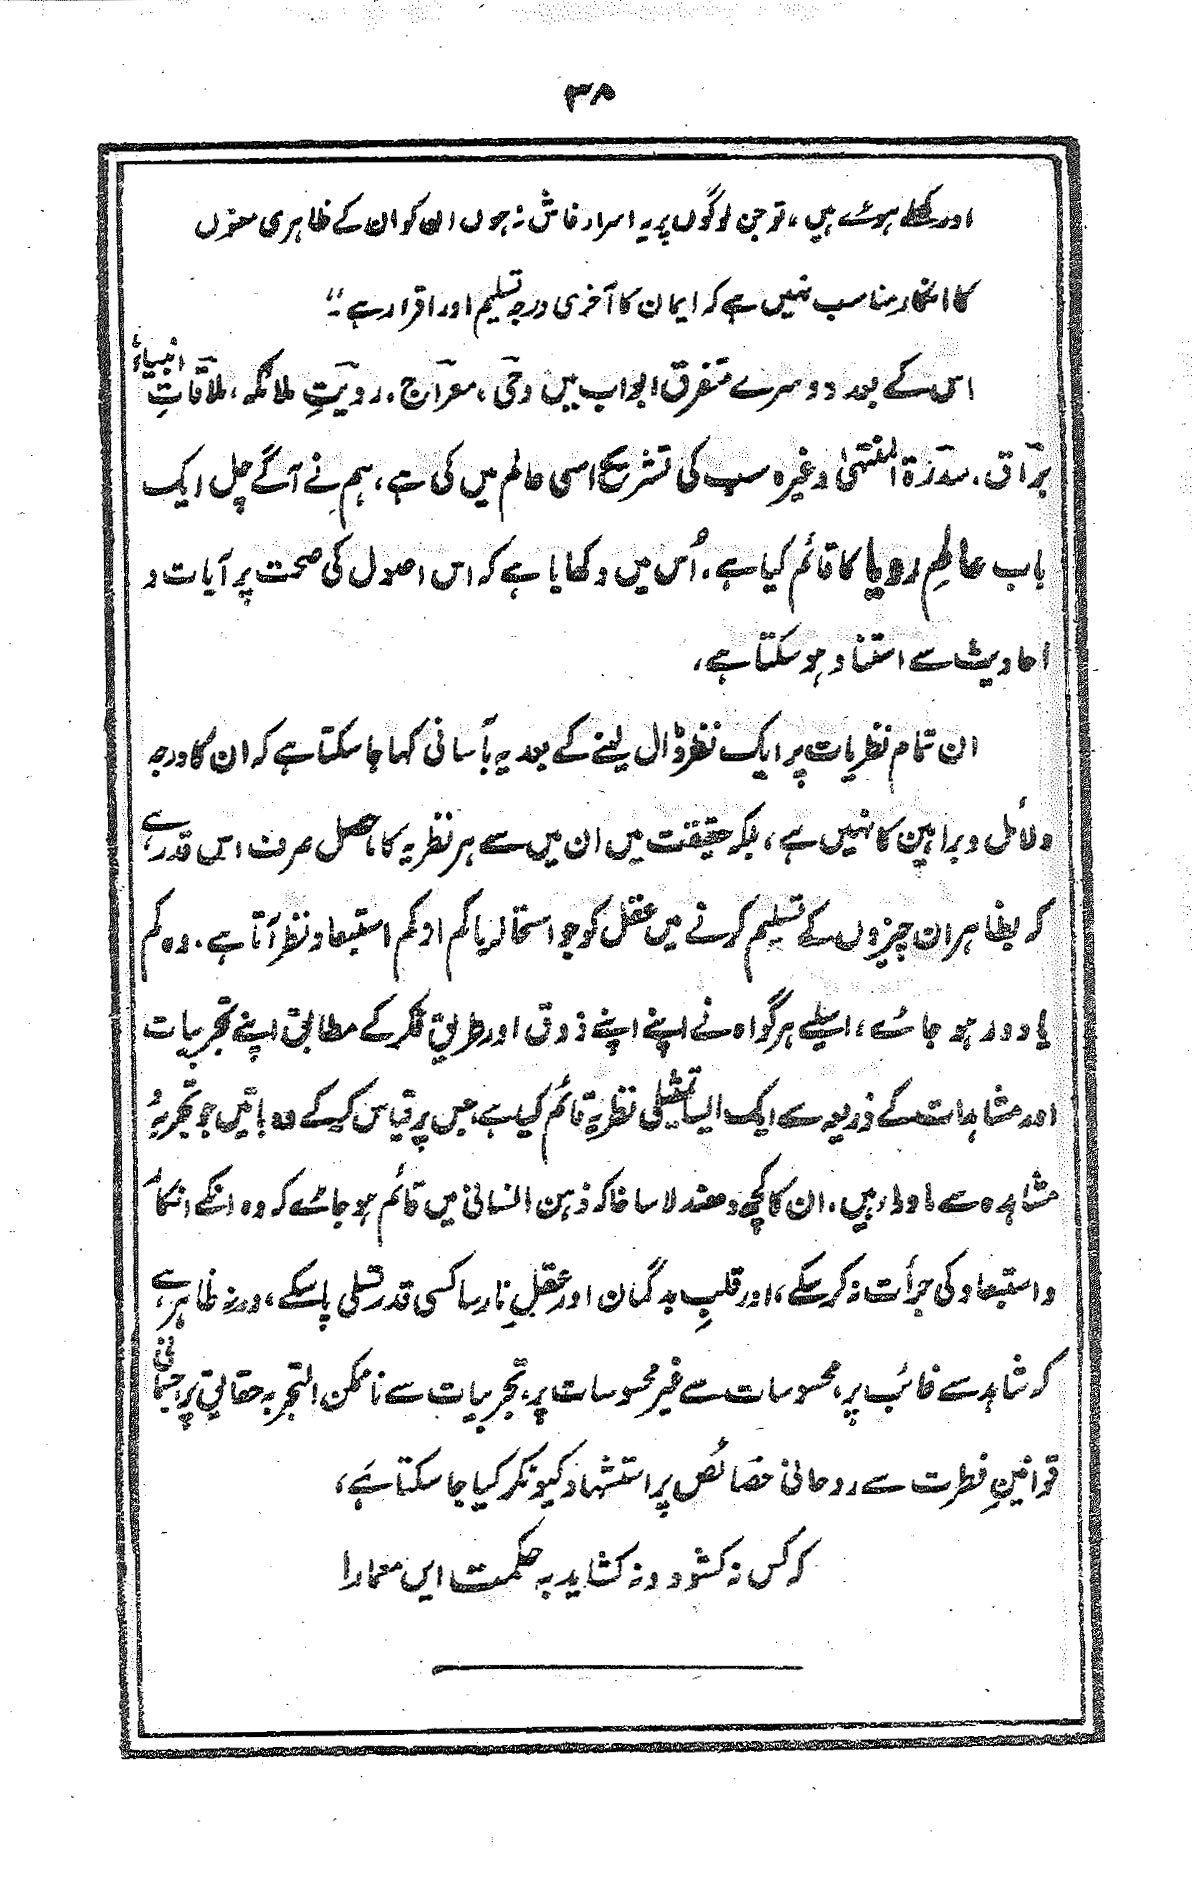 ۳۸
اور کھلے ہوئے ہیں، تو جن لوگوں پر یہ اسرار فاش نہ ہوں ان کو ان کے ظاہری معنوں
کا انکار مناسب نہیں ہے کہ ایمان کا آخری درجہ تسلیم اور اقرار ہے۔"
اس کے بعد دوسرے متفرق ابواب میں وحی، معراج، رویتِ ملائکہ، ملاقاتِ انبیاء،
براق، سدرۃ المنتہیٰ وغیرہ سب کی تشریح اسی عالم میں کی ہے، ہم نے آگے چل ایک
باب عالمِ رویا کا قائم کیا ہے، اُس میں دکھایا ہے کہ اس اصول کی صحت پر آیات و
احادیث سے استناد ہو سکتا ہے،
ان تمام نظریات پر ایک نظر ڈال لینے کے بعد یہ بآسانی کہا جا سکتا ہے کہ ان کا درجہ
دلائل و براہین کا نہیں ہے، بلکہ حقیقت میں ان میں سے ہر نظریہ کا ماحصل صرف اس قدر ہے،
کہ بظاہر ان چیزوں کے تسلیم کرنے میں عقل کو جو استحالہ یا کم از کم استبعاد نظر آتا ہے، وہ کم
یا دور ہو جائے، اسلیے ہر گواہ نے اپنے اپنے ذوق اور طریقِ فکر کے مطابق اپنے تجربیات
اور مشاہدات کے ذریعہ سے ایک ایسا تمثیلی نظریہ قائم کیا ہے جس پر قیاس کر کے وہ باتیں جو تجربہ و
مشاہدہ سے ماوراء ہیں، ان کا کچھ دھندلا سا خاکہ ذہن انسانی میں قائم ہو جائے کہ وہ انکے انکار
و استبعاد کی جرأت نہ کر سکے، اور قلبِ بدگمان اور عقلِ نارسا کسی قدر تسلی پا سکے، ورنہ ظاہر ہے،
کہ شاہد سے غائب پر، محسوسات سے غیر محسوسات پر، تجربیات سے ناممکن التجربہ حقایق پر، جسمانی
قوانینِ فطرت سے روحانی خصائص پر استشہاد کیونکر کیا جا سکتا ہے،
کہ کس نہ کشود و نہ کشاید بہ حکمت ایں معما را